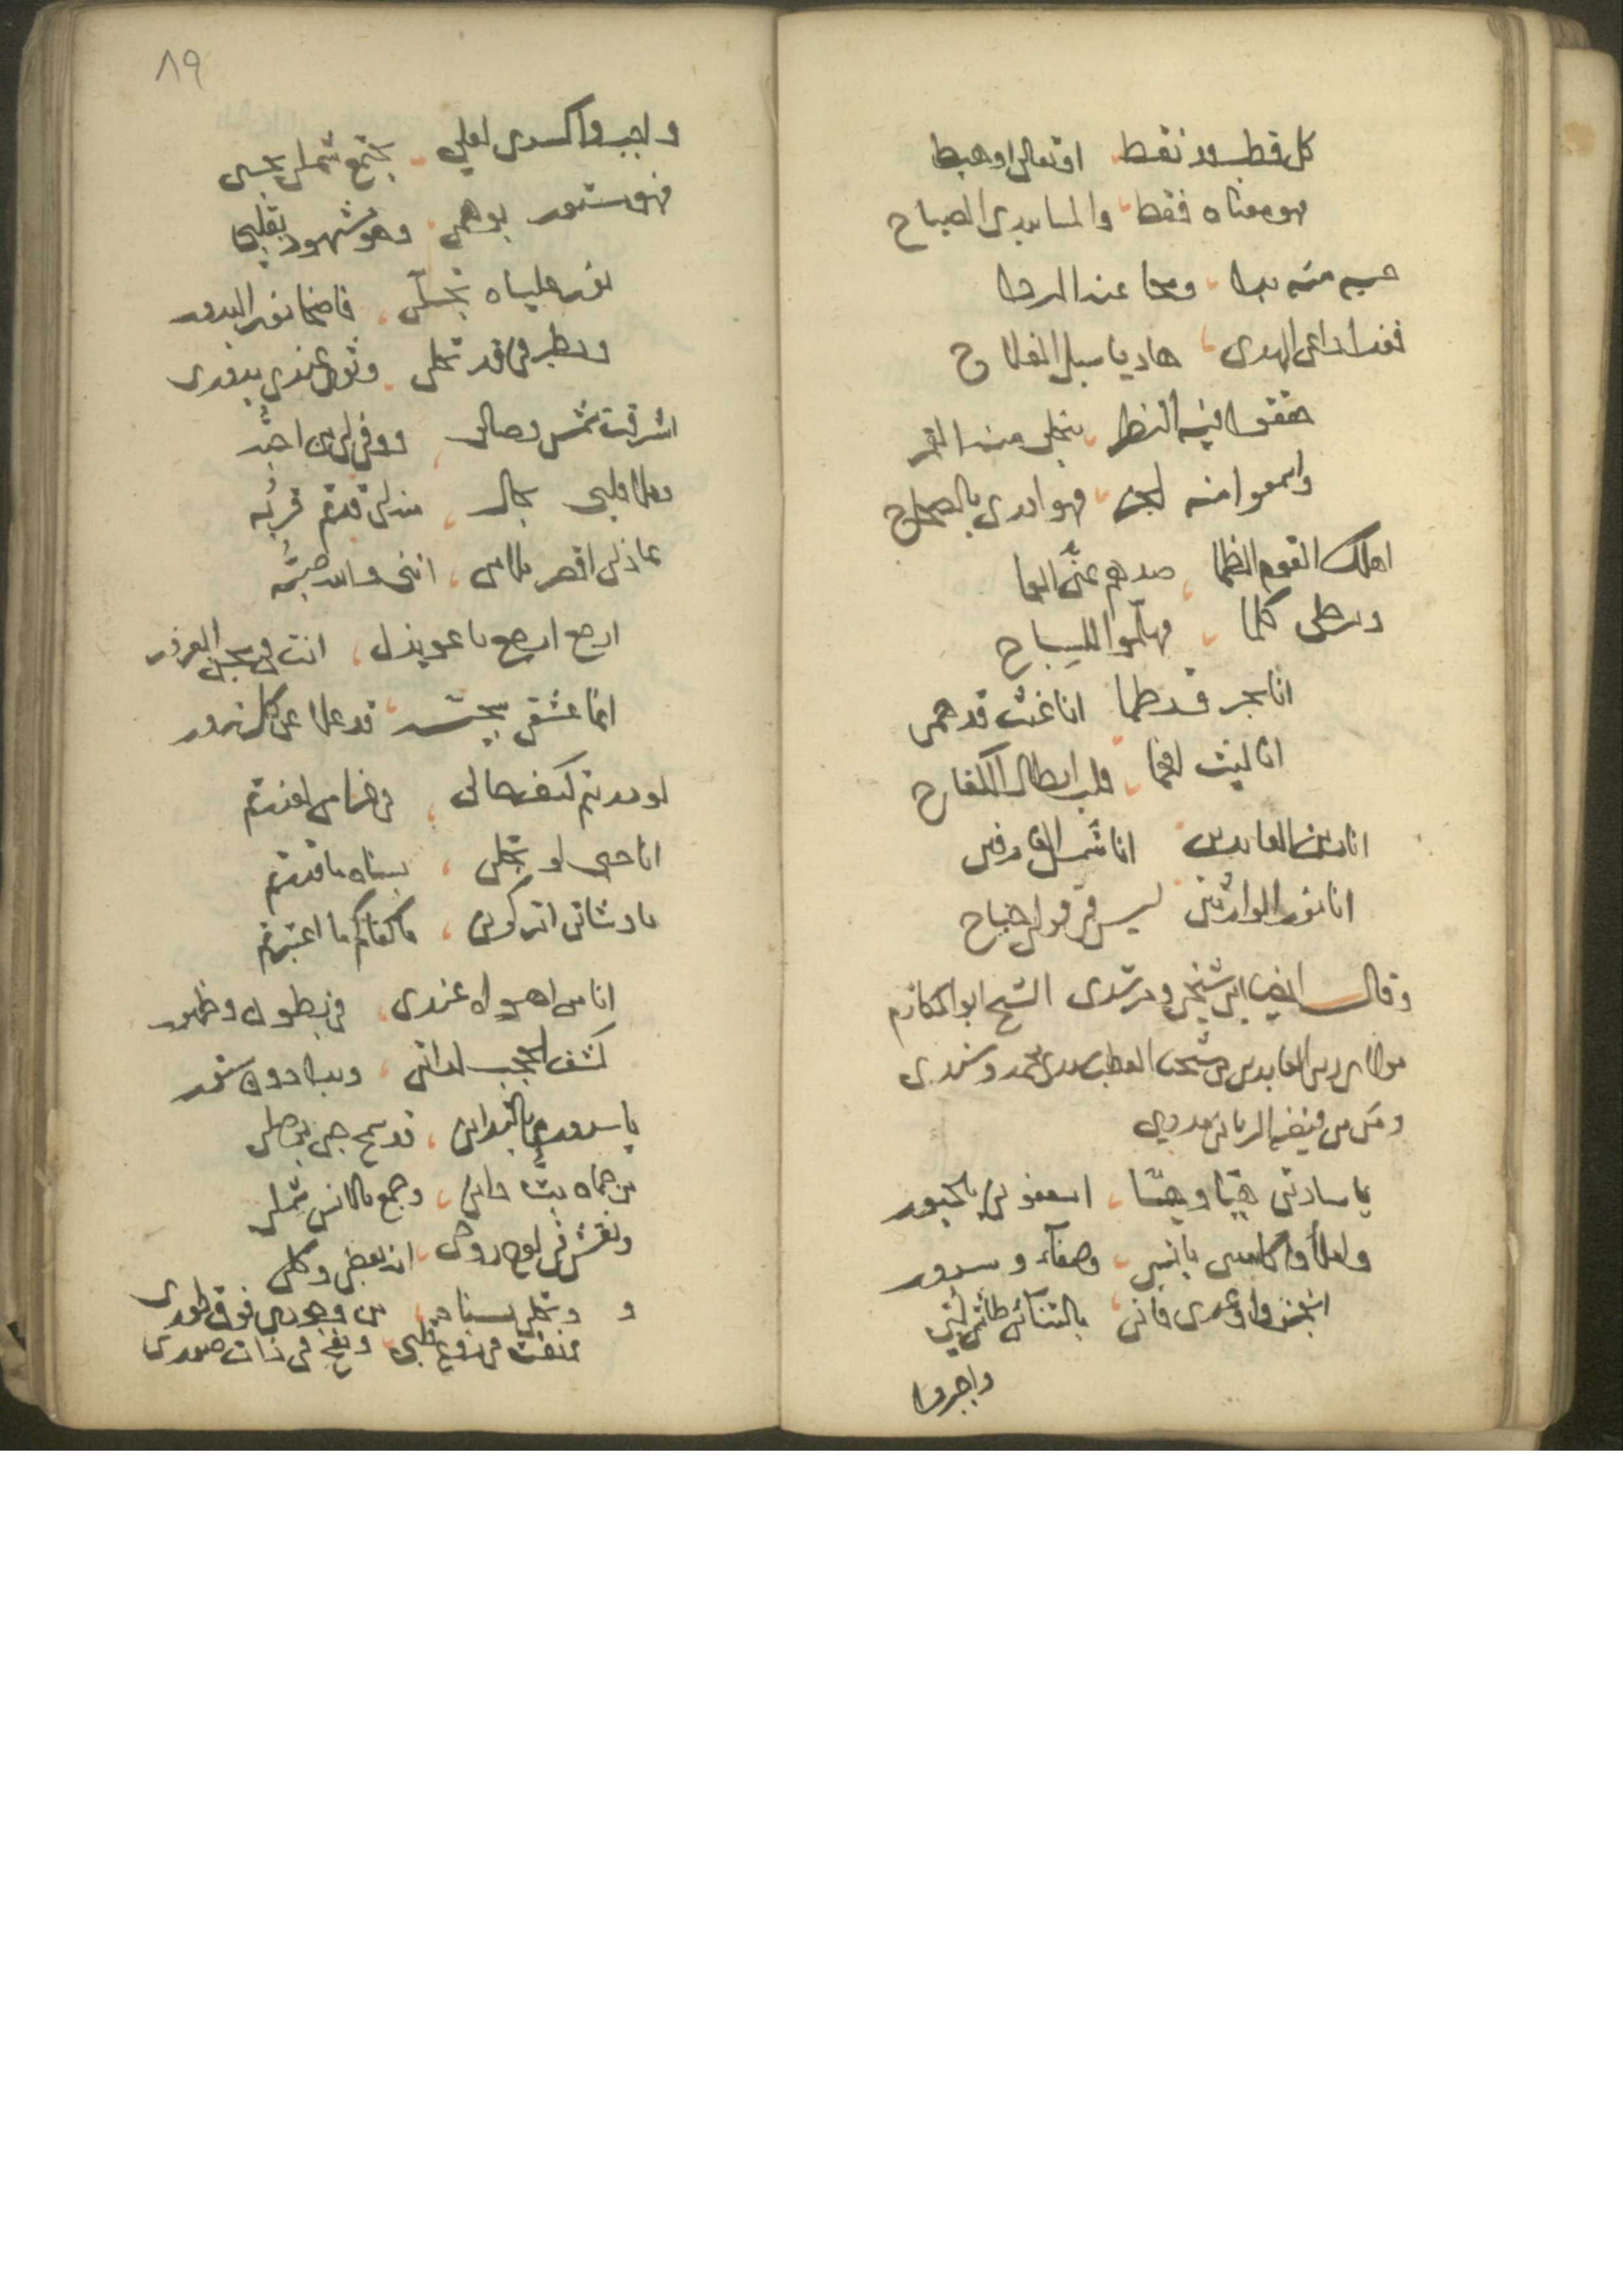 كل قطب ونقط او تعالى او هبط
هو معناه فقط والمسا يبدى الصباح
منه بدا ومحا عند الردا
فغدا داعى الهدى هاديا سبل الفلاح
حققوا فيه النظر ينجلى
واسمعوا منه فهو ادرى بالصحاح
اهلك القوم الظما صدهم عنى العما
كلما
انا بحر قد طما انا غيث قد همى
انا ليث ابطال الكفاح
انا زين العابدين انا شمس العارفين
انا نور الوارثين ليس فى قولى جناح
وقال ايضا ابن شيخى ومرشدى الشيخ ابو المكارم
مولاى زين العابدين بن شيخنا القطب سيدى محمد وسندى
ومن من فيضه الربانى مددى
يا سادتى هيا وهيا اسعفونى بالحبور
واملأوا كاسى يا نديمى وصفاء وسرور
انجزوا وعدى فانى بالتنائى طاش لبى
واجبروا
٨٩
واجبروا كسرى لعلى يجتمع شملى بحبى
فهو مستور بوهمى وهو مشهود بقلبى
نور علياه تجلى فاضحا نور البدور
وبطرفى قد تحلى عندى بدورى
اشرقت شمس وصالى ووفى لى من احبه
وملا قلبى جمال منذ لى قدم قربه
عاذلى اقصر ملامى اننى والله صبه
ارجع ارجع يا عويذل انت فى سجن الغرور
انما عشقى بحبى قد علا عن كل زور
لو دريتم كيف حالى فى غرامى لعذرتم
انا حبى لو تجلى بسناه ما قدرتم
ما دشانى اتركونى ما كفاكم ما اعتبرتم
انا من اهواه عندى فى بطون وظهور
كشف الحجب لذاتى وبدا دون ستور
يا سرورى بالتدانى قد سمح حبى بوصلى
من حماه بت دانى وجمع بالانس شملى
ونقش فى لوح روحى انه بعضى وكلى
وتجلى بسناه من وجودى فوق طورى
فنفث فى روع قلبى ونفخ فى ذات صورى